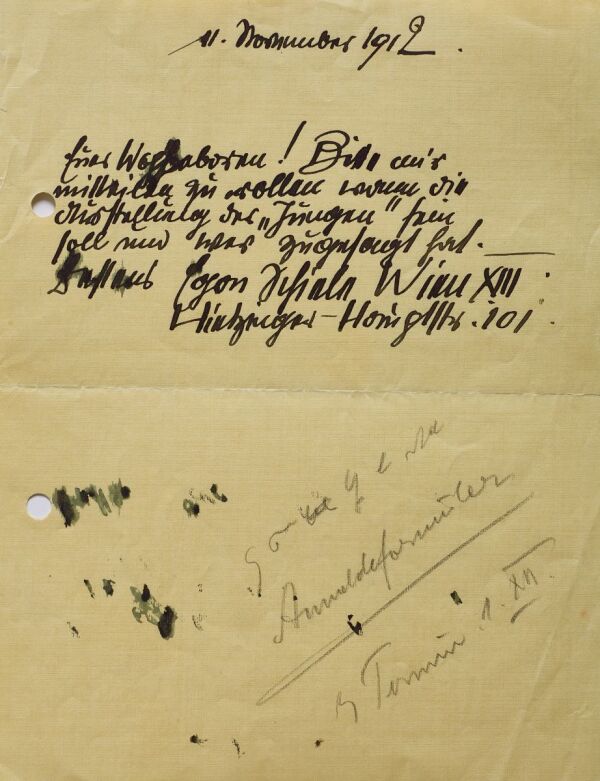 11. November 1912.
Euer Wohlgeboren! Bitte mir
mitteilen zu wollen wann die
Ausstellung der „Jungen“ sein
soll und wer zugesagt hat. —
Bestens Egon Schiele Wien XIII.
Hietzinger-Hauptstr. 101.
Anmeldeformular
Termin 1. XII.